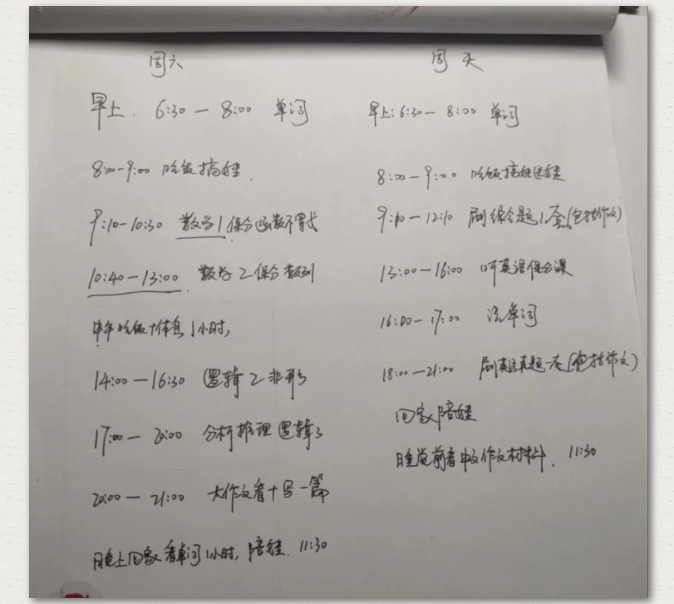 周六
早上. 6:30 — 8:00 单词
8:00-9:00 吃饭搞娃.
9:10-10:30 数学1保分函数不等式
10:40-13:00. 数学2保分数列
中午吃饭+休息1小时,
14:00-16:30 逻辑2非形
17:00-20:00 分析推理逻辑3
20:00-21:00 大作文看+写一篇
晚上回家看单词1小时, 陪娃. 11:30
周天
早上: 6:30-8:00 单词
8:00-9:00 吃饭搞娃送娃
9:10-12:10 刷综合真题1套(包括作文)
13:00-16:00 听英语保分课
16:00-17:00 单词
18:00-21:00 刷英语真题一套(包括作文)
回家陪娃
睡觉前看中文作文材料. 11:30